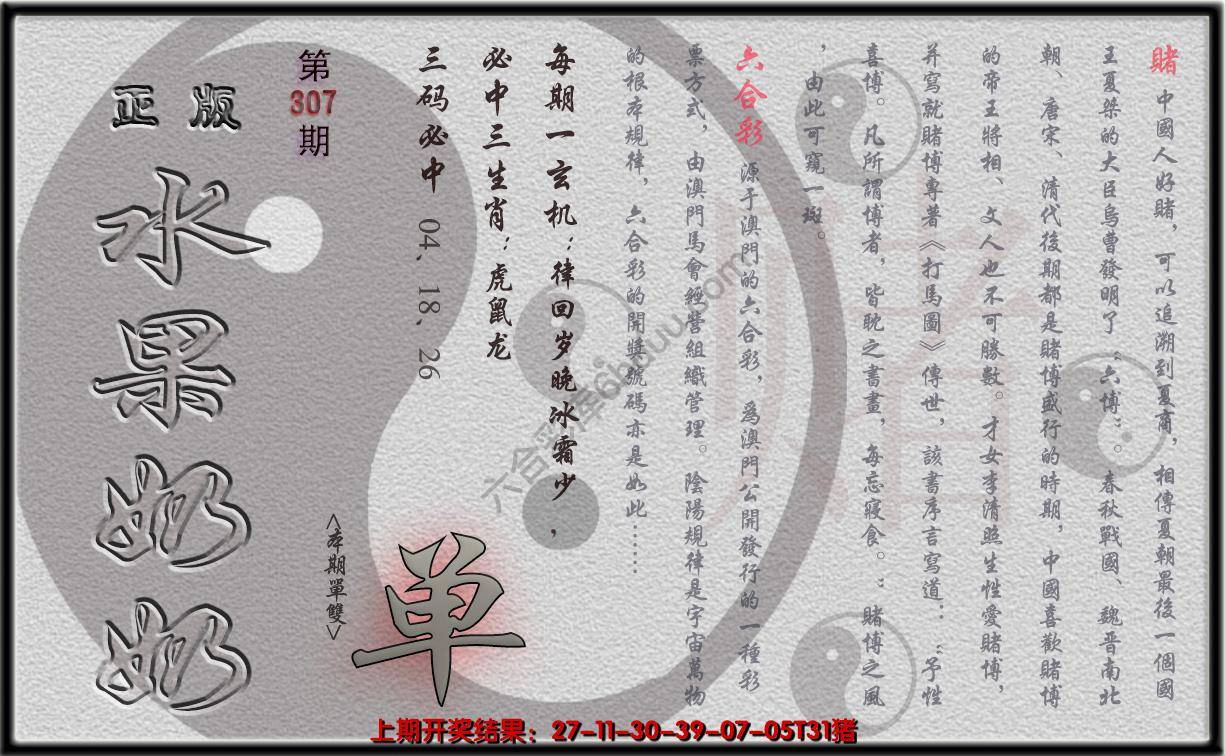 賭 中國人好賭，可以追溯到夏商，相傳夏朝最後一個國
王夏桀的大臣烏曹發明了“六博”。春秋戰國、魏晋南北
朝、唐宋、清代後期都是賭博盛行的時期，中國喜歡賭博
的帝王將相、文人也不可勝數。才女李清照生性愛賭博，
并寫就賭博專著《打馬圖》傳世，該書序言寫道：“予性
喜博。凡所謂博者，皆耽之書畫，每忘寢食。”賭博之風
，由此可窺一斑。
六合彩 源于澳門的六合彩，爲澳門公開發行的一種彩
票方式，由澳門馬會經營組織管理。陰陽規律是宇宙萬物
的根本規律，六合彩的開獎號碼亦是如此……
每期一玄机：律回岁晚冰霜少，
必中三生肖：虎鼠龙
三码必中 04、18、26
第
307
期
正版
水果奶奶
<本期單雙>
单
賭
六合彩泽6buuu.com
上期开奖结果：27-11-30-39-07-05T31猪